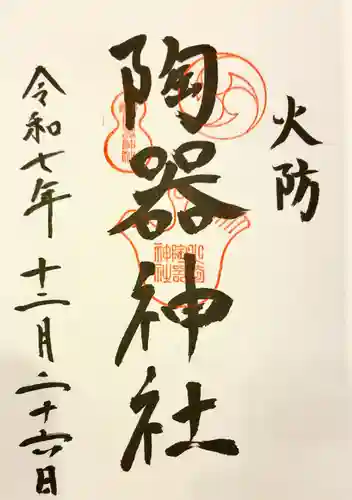 火防
陶器神社
令和七年 十二月二十六日
陶器神社